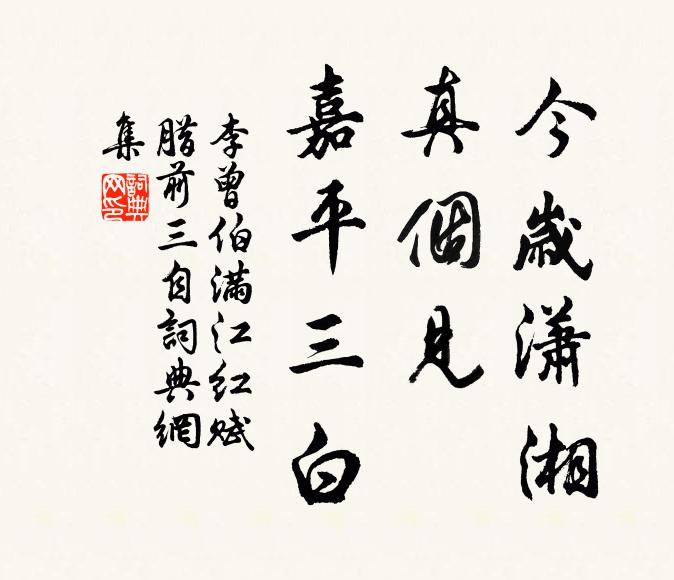 今歲瀟湘
真個見
嘉平三白
李曾伯滿江紅賦
腊前三自詞典網
集
詞典網印